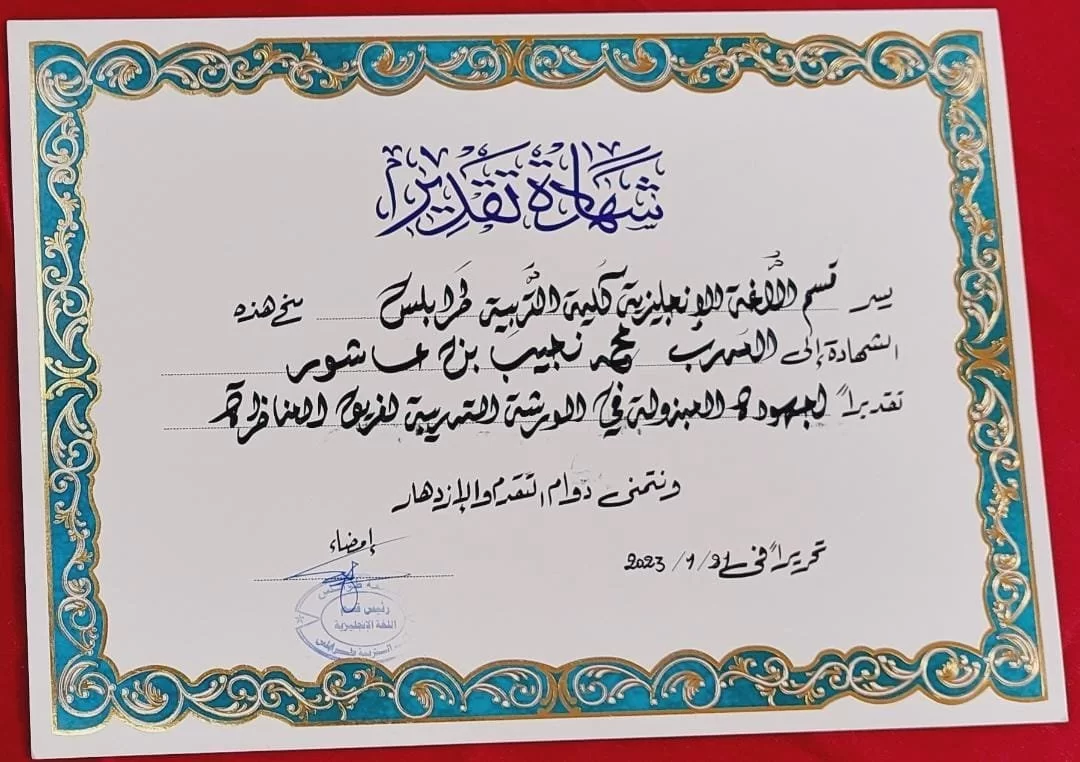 شهادة تقدير
يسر قسم اللغة الإنجليزية كلية التربية طرابلس منح هذه
الشهادة إلى المدرب محمد نجيب بن عاشور
تقديراً لجهوده المبذولة في الورشة التدريبية لفريق المناظرة
ونتمنى دوام التقدم والإزدهار
تحريراً في 21 / 1 / 2023
إمضاء
رئيس قسم
اللغة الإنجليزية
التربية طرابلس